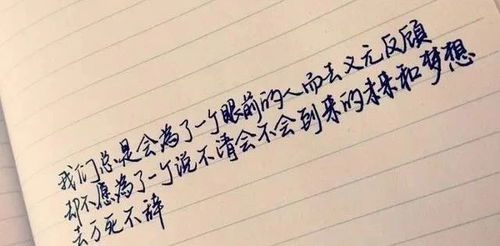 我们总是会为了一个眼前的人而去义无反顾
却不愿为了一个说不清会不会到来的未来和梦想
去万死不辞